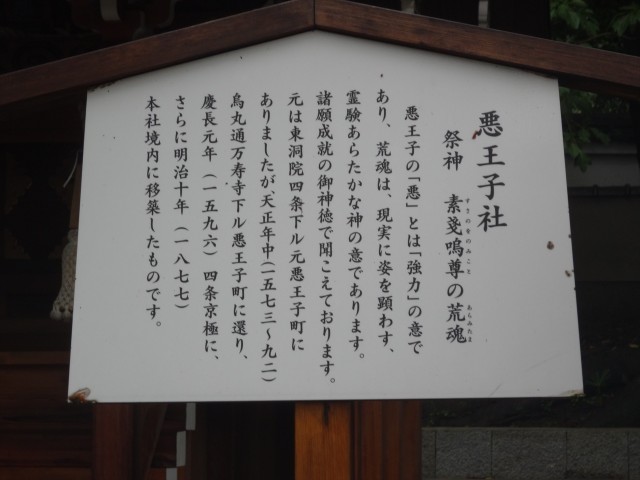 悪王子社
祭神 素戔嗚尊の荒魂
すさのをのみこと あらみたま
悪王子の「悪」とは「強力」の意で
あり、荒魂は、現実に姿を顕わす、
霊験あらたかな神の意であります。
諸願成就の御神徳で聞こえております。
元は東洞院四条下ル元悪王子町に
ありましたが、天正年中(一五七三〜九二)
烏丸通万寿寺下ル悪王子町に還り、
慶長元年(一五九六)四条京極に、
さらに明治十年(一八七七)
本社境内に移築したものです。